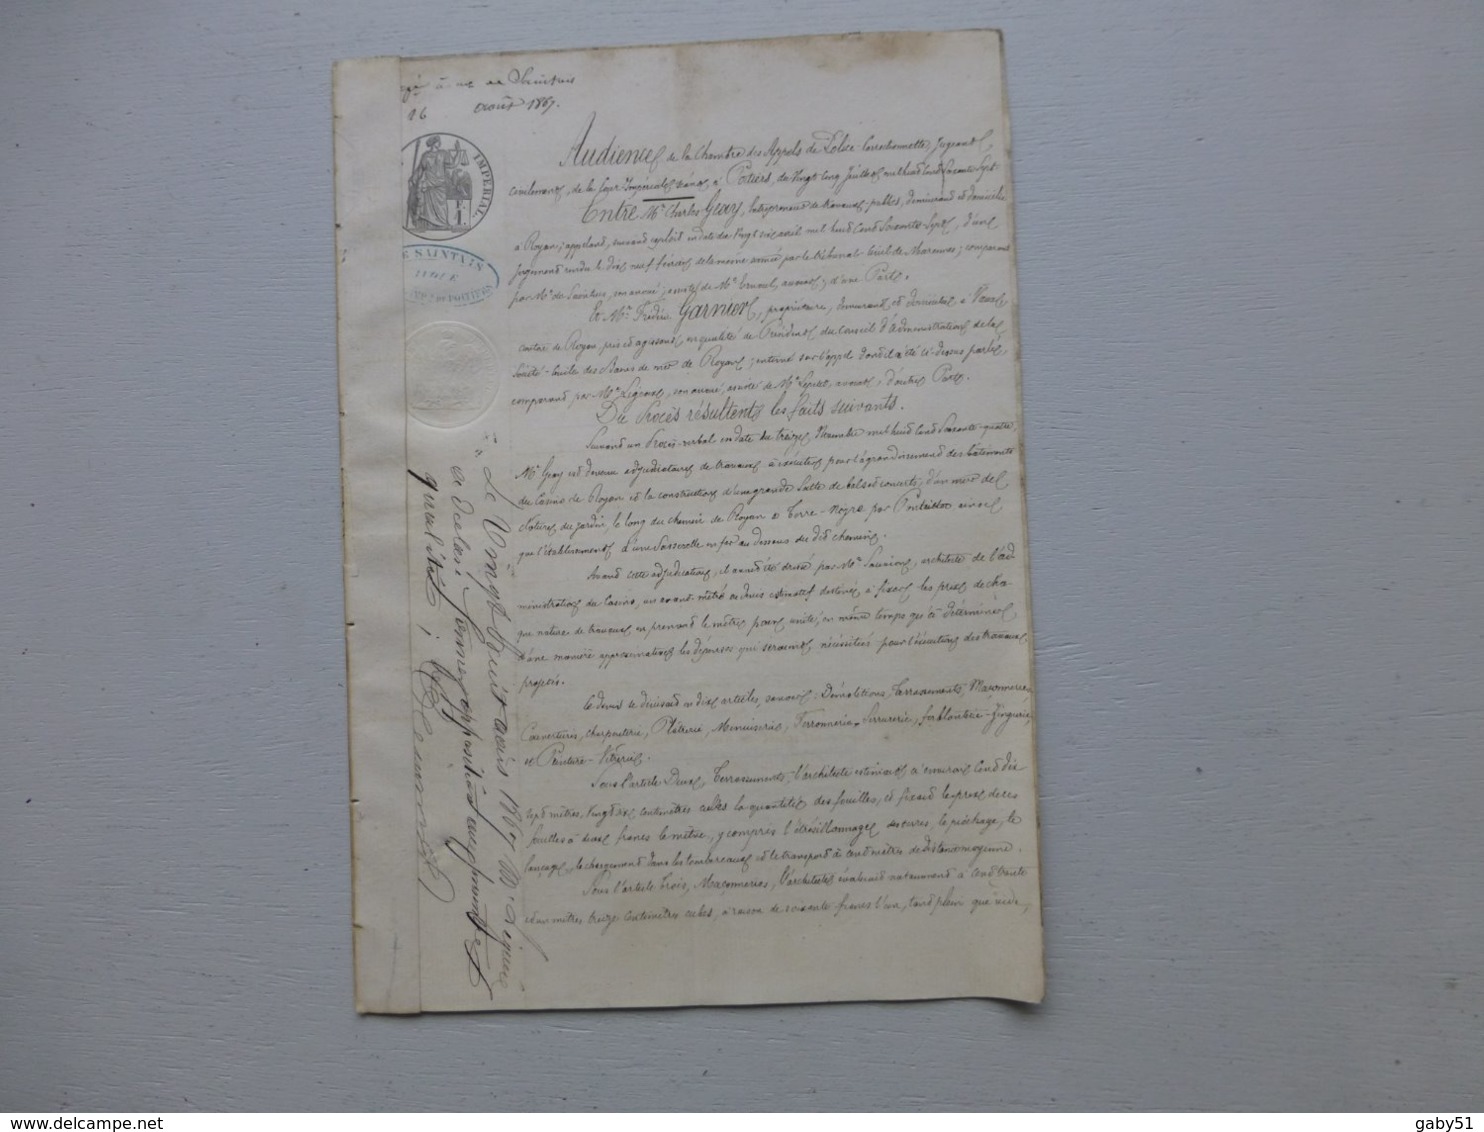 août 1867.
16
IMPERIAL
SAINTAIN
Audience de la Chambre des Appels de Police Correctionnelle, Jugeant
civilement, de la Cour Impériale séant à Poitiers, du Vingt cinq Juillet mil huit cent soixante sept
Entre Mr. Charles Geay, Entrepreneur de travaux publics, demeurant et domicilié
à Royan, appelant, suivant exploit en date du vingt six avril mil huit cent soixante-sept, d'un
jugement rendu le dix neuf février de la même année par le tribunal civil de Marennes; comparant
par Me. son avoué, assisté de Me. avocat; d'une Part.
Et Mr. Frédéric Garnier, propriétaire, demeurant et domicilié à Vaux
canton de Royan, pris et agissant en qualité de Président du Conseil d'Administration de la
Société Civile des Bains de mer de Royan; intimé sur l'appel dont il a été ci-dessus parlé,
comparant par Me. son avoué, assisté de Me. Lepetit, avocat, d'autre Part.
Du Procès résultent les faits suivants.
Suivant un Procès-verbal en date du treize Novembre mil huit cent soixante-quatre,
Mr. Geay est devenu adjudicataire de travaux à exécuter pour l'agrandissement des bâtiments
du Casino de Royan et la construction d'une grande Salle de bals et concerts, d'un mur de
clôture du jardin, le long du chemin de Royan à Terre-Nègre par Pontaillac, ainsi
que l'établissement d'une Passerelle en fer au dessus du dit chemin.
Avant cette adjudication, il avait été dressé par Mr. architecte de l'ad-
ministration du Casino, un avant-métré et devis estimatif destinés à fixer les prix de cha-
que nature de travaux en prenant le mètre pour unité, en même temps qu'à déterminer
d'une manière approximative les dépenses qui seraient nécessitées pour l'exécution des travaux
projetés.
Le devis se divisait en dix articles, savoir: Démolitions, Terrassements, Maçonnerie,
Couvertures, charpenterie, Plâtrerie, Menuiserie, Ferronnerie-Serrurerie, ferblanterie-Zinguerie,
et Peinture-Vitrerie.
Sous l'article Deux, Terrassements, l'architecte estimait à environ cent dix
sept mètres, vingt six centimètres cubes la quantité des fouilles, et fixait le prix de ces
fouilles à deux francs le mètre, y compris l'étrésillonnage des terres, le piochage, le
lançage, le chargement dans les tombereaux et le transport à cent mètres de distance moyenne.
Sous l'article Trois, Maçonneries, l'architecte évaluait notamment à cent trente
deux mètres treize centimètres cubes, à raison de soixante francs l'un, tant plein que vide,
Le Vingt huit août 1867 Me.
a déclaré former opposition aux présentes
qualités
gaby51